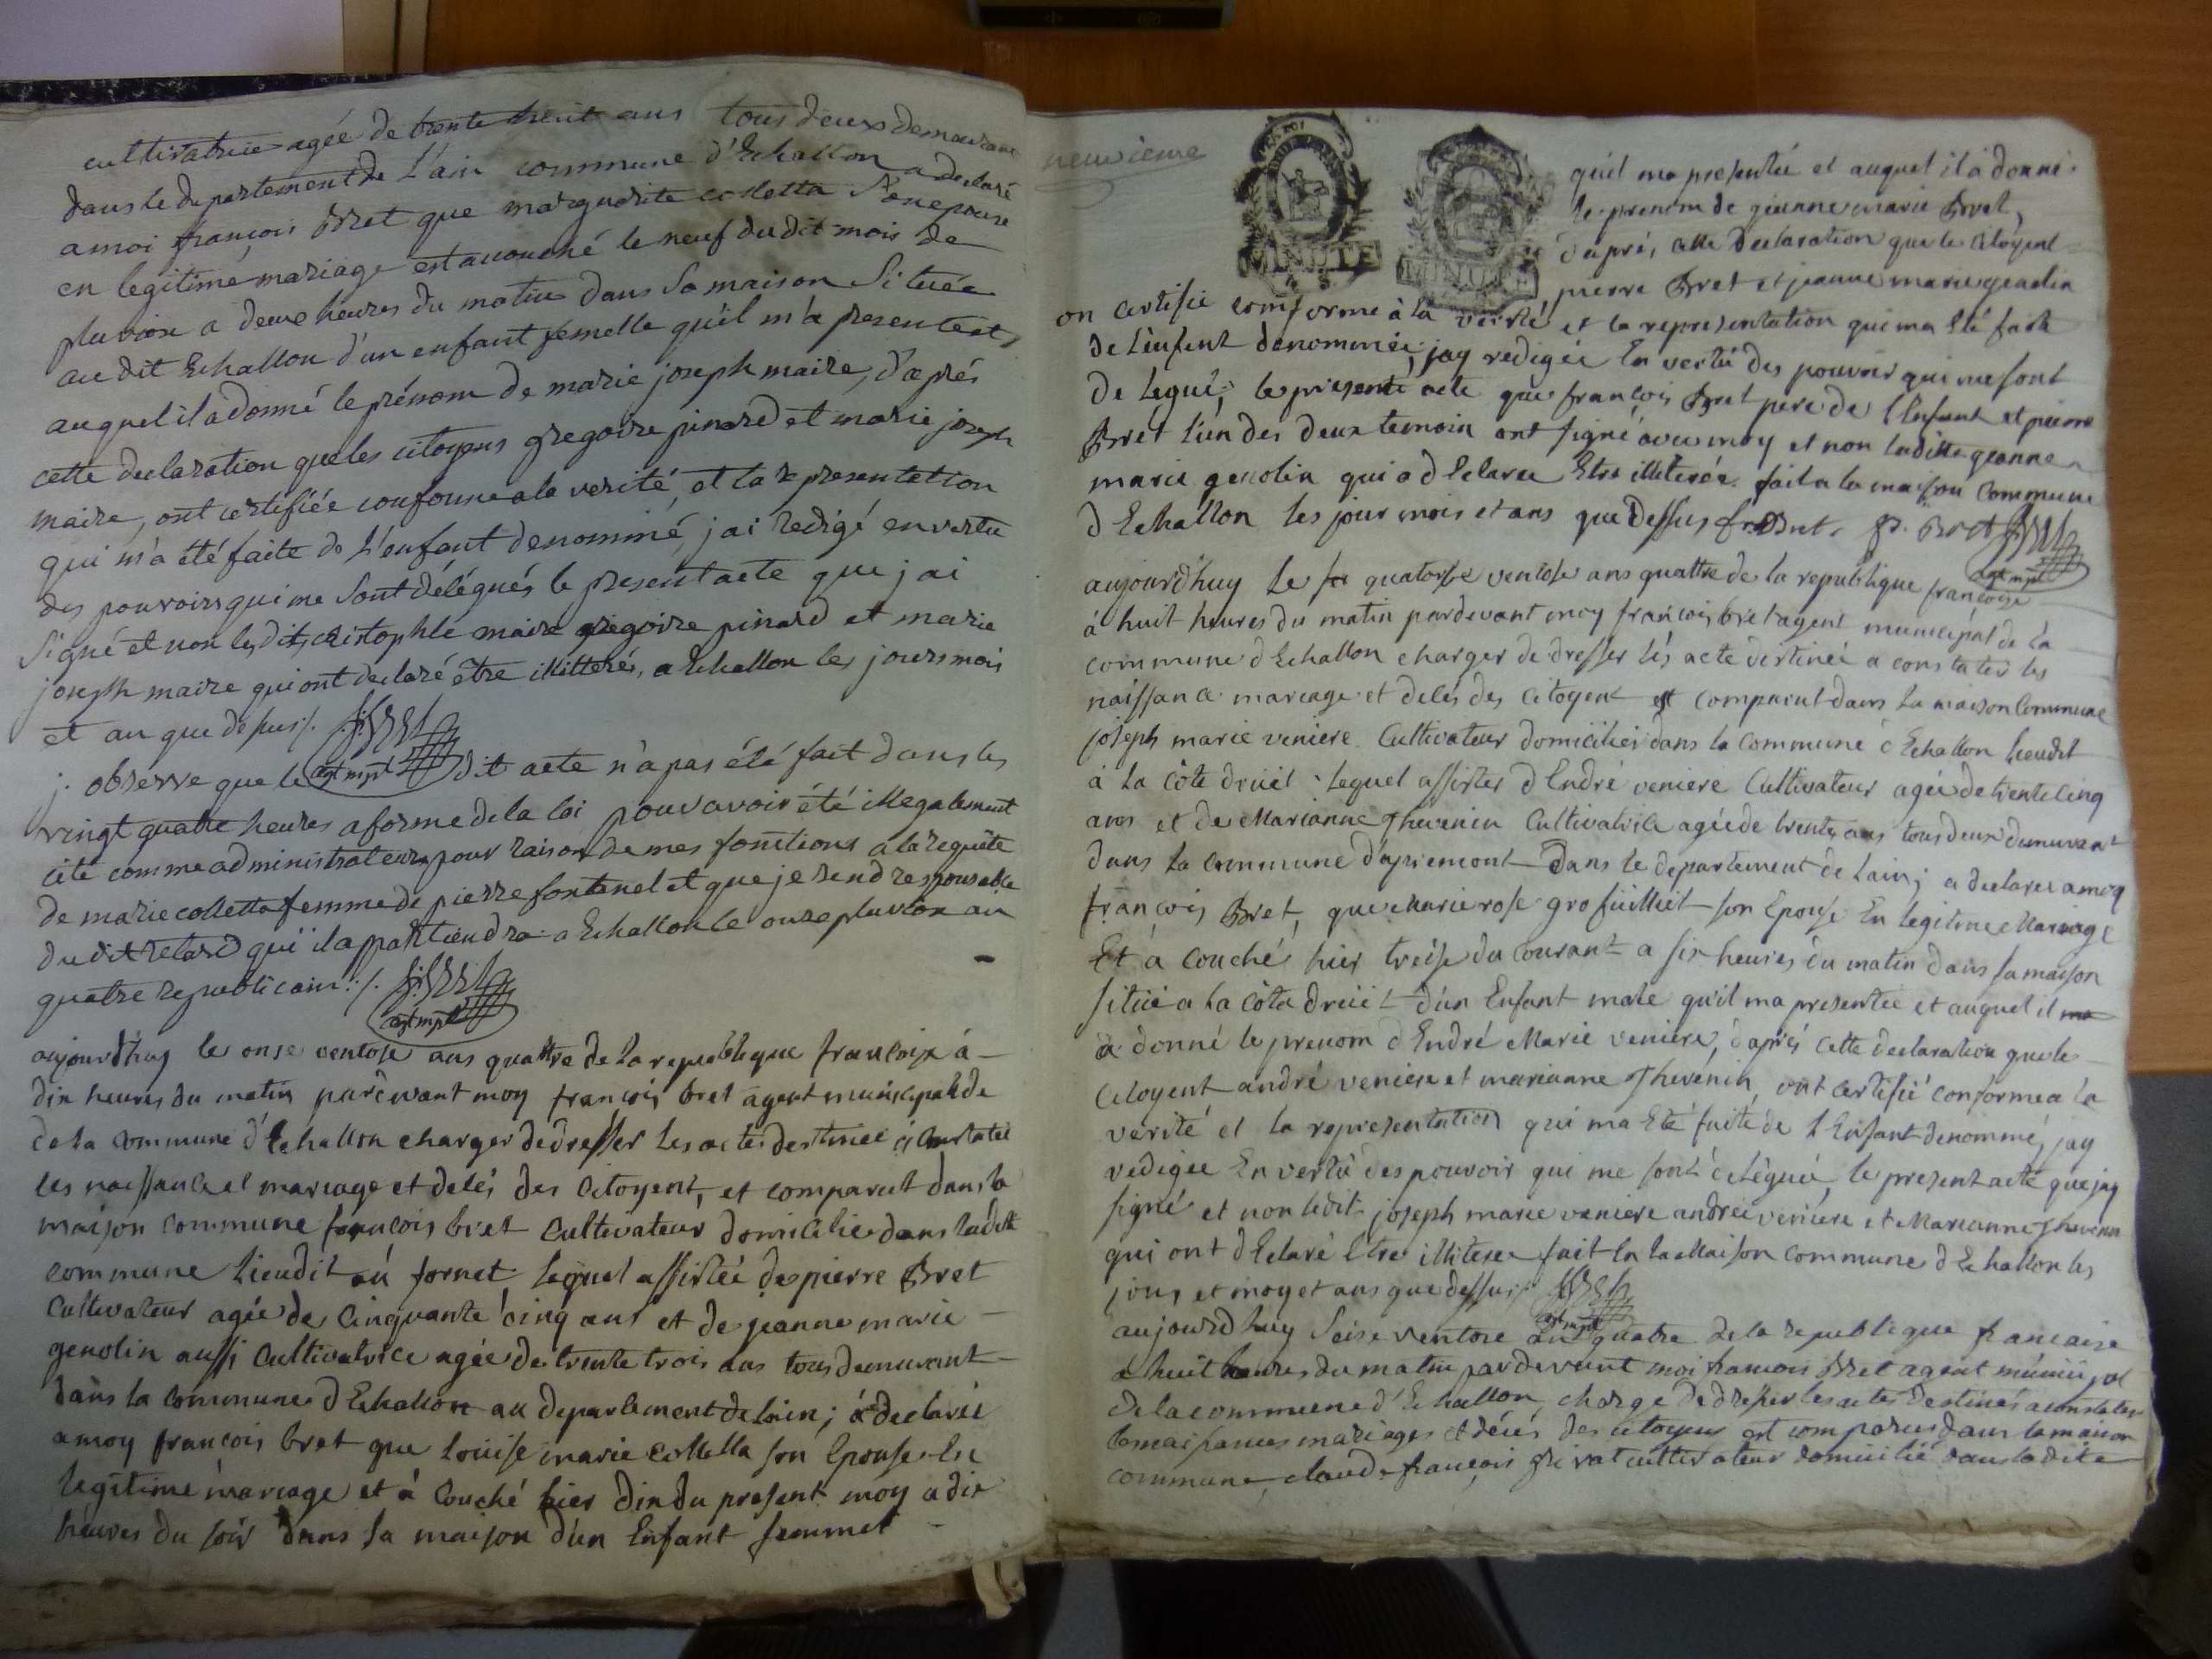 cultivatrice agée de trente huit ans tous deux demeurant
dans le departement de L'ain commune d'Echallon a declaré
a moi françois Bret que marguerite colletta Son epouse
en legitime mariage est accouché le neuf du dit mois de
pluviose a deux heures du matin dans Sa maison Située
au dit Echallon d'un enfant femelle qu'il m'a presenté et
auquel il a donné le prénom de marie joseph maire, d'aprés
cette declaration que les citoyens gregoire pinard et marie joseph
maire, ont certifiée conforme a la verité, et la representation
qui m'a été faite de L'enfant denommé, j'ai redigé en vertu
des pouvoirs qui me Sont délégués le present acte que j'ai
Signé et non lesdits cristophle maire gregoire pinard et marie
joseph maire qui ont declaré être illitterés, a Echallon les jours mois
et an que dessus /.
agt mpl
j'observe que le dit acte n'a pas été fait dans les
vingt quatre heures a forme de la loi pour avoir été illegalement
cité comme administrateur pour raison de mes fonctions a la requête
de marie colletta femme de pierre fontenel et que je rend responsable
du dit retard qui il appartiendra a Echallon le onze pluviose an
quatre republicain /.
agt mpl
aujourd'huy le onse ventose ans quattre de la republeque francoise à
dix heures du matin pardevant moy francois bret agent municipal de
de la commune d'Echallon charger de dresser les actes destinée a constater
les naissance et mariage et delés des Citoyent, et comparut dans la
maison commune francois bret Cultivateur domicilie dans ladite
commune lieudit au fornet lequel assistée de pierre Bret
Cultivateur agée de Cinquante cinq ans et de jeanne marie
genolin aussi Cultivatrice agée de trente trois ans tous demeurant
dans la commune d'Echallon au departement de lain; a declarée
a moy francois bret que louise marie colletta son Epouse En
legitime mariage et à Couché hier dix du present moy a dix
heures du soir dans sa maison d'un Enfant femmel
neuvieme
MINUTE
MINUTE
quil ma presentée et auquel il à donné
le prenom de jeanne marie Bret,
d'aprés cette declaration que le Citoyent
pierre Bret et jeanne marie genolin
on certifié comforme à la verité, et la representation qui ma Eté faite
de L'enfent denommée, jay redigée En vertu des pouvoir qui me sont
delegué, le presente acte que francois Bret pere de l'Enfant et pierre
Bret l'un des deux temoin ont signé avec moy et non ladite jeanne
marie genolin qui a dEclaree Etre illiterée fait a la maison Commune
d'Echallon les jour mois et ans que dessus fr Bret. P. Bret
agt mpl
aujourd'huy le quatorse ventose ans quattre de la republique francoise
à huit heures du matin pardevant moy francois bret agent municipal de la
commune d'Echallon charger de dresser les acte destinée a constater les
naissance mariage et delés des Citoyent et comparut dans la maison Commune
joseph marie veniere Cultivateur domiciliér dans la commune d'Echallon lieudit
à la côte druet lequel assister d'Endré veniere Cultivateur agée de trente cinq
ans et de Marianne Thevenin Cultivatrice agée de trente ans tous deux demurant
dans la commune d'apremont dans le departement de Lain; a declaree a moy
françois Bret, que Marie rose grosfuilliet son Epouse En legitime Mariage
Et à Couché hier treise du Courant a six heures du matin dans sa maison
situé a la côta druet d'un Enfant male qu'il ma presentée et auquel il
à donné le prenom d'Endré Marie veniere, d'aprés cette declaration que le
Citoyent andré veniere et marianne Thevenin, ont certifié conforme a la
verité et la representation qui ma Eté faite de l'Enfant denommé, jay
redigée En vertu des pouvoir qui me sont delégué, le present acte que jay
signé et non ledit joseph marie veniere andrée veniere et Marianne Thevenin
qui ont dEclaré Etre illiteree fait En la Maison commune d'Echallon les
jour et moy et ans que dessus /.
agt mpl
aujourdhuy Seise ventose an quatre de la republique francaise
a huit heures du matin pardevant moi francois Bret agent municipal
de la commune d'Echallon, chargé de dresser les actes destinés a constater
les naissances mariages et décés des citoyens est comparu dans la maison
commune claude françois grivat cultivateur domicilié dans la dite